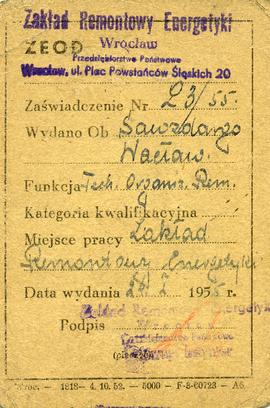 Zakład Remontowy Energetyki
ZEOD Wrocław
Przedsiębiorstwo Państwowe
Wrocław, ul. Plac Powstańców Śląskich 20
Zaświadczenie Nr 23/55.
Wydano Ob. Sawzdargo
Wacław.
Funkcja Tech. Organiz. Rem.
Kategoria kwalifikacyjna
Miejsce pracy Zakład
Remontowy Energetyki
Data wydania 1955 r.
Zakład Remontowy Energetyki
Podpis
(pieczęć)
1818— 4. 10. 52. — 5000 — F-8-60723 — A6.